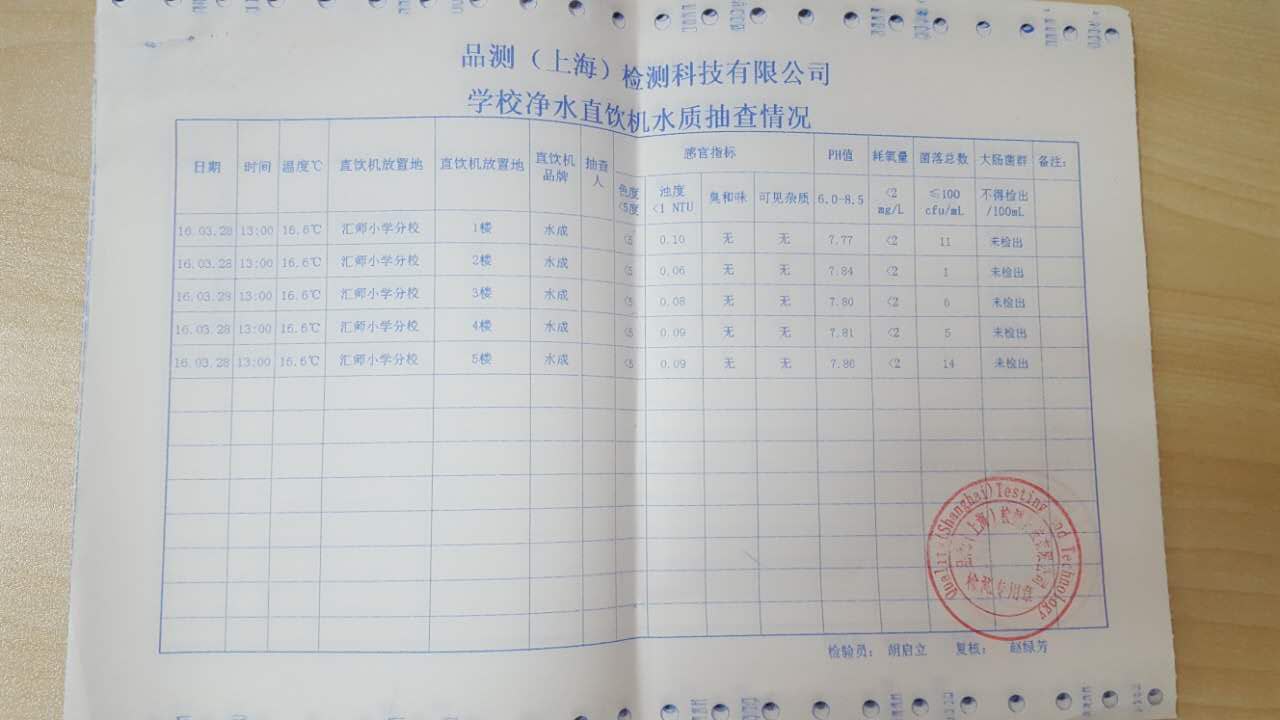 品测（上海）检测科技有限公司
学校净水直饮机水质抽查情况
日期 时间 温度℃ 直饮机放置地 直饮机放置地 直饮机品牌 抽查人 感官指标 PH值 耗氧量 菌落总数 大肠菌群 备注：
色度<5度 浊度<1 NTU 臭和味 可见杂质 6.0-8.5 <2 mg/L ≤100 cfu/mL 不得检出/100mL
16.03.28 13:00 16.6℃ 汇师小学分校 1楼 水成 <5 0.10 无 无 7.77 <2 11 未检出
16.03.28 13:00 16.6℃ 汇师小学分校 2楼 水成 <5 0.06 无 无 7.84 <2 1 未检出
16.03.28 13:00 16.6℃ 汇师小学分校 3楼 水成 <5 0.08 无 无 7.80 <2 6 未检出
16.03.28 13:00 16.6℃ 汇师小学分校 4楼 水成 <5 0.09 无 无 7.81 <2 5 未检出
16.03.28 13:00 16.6℃ 汇师小学分校 5楼 水成 <5 0.09 无 无 7.86 <2 14 未检出
(Shanghai)Testing Technology
检测专用章
检验员： 胡启立 复核： 赵绿芳